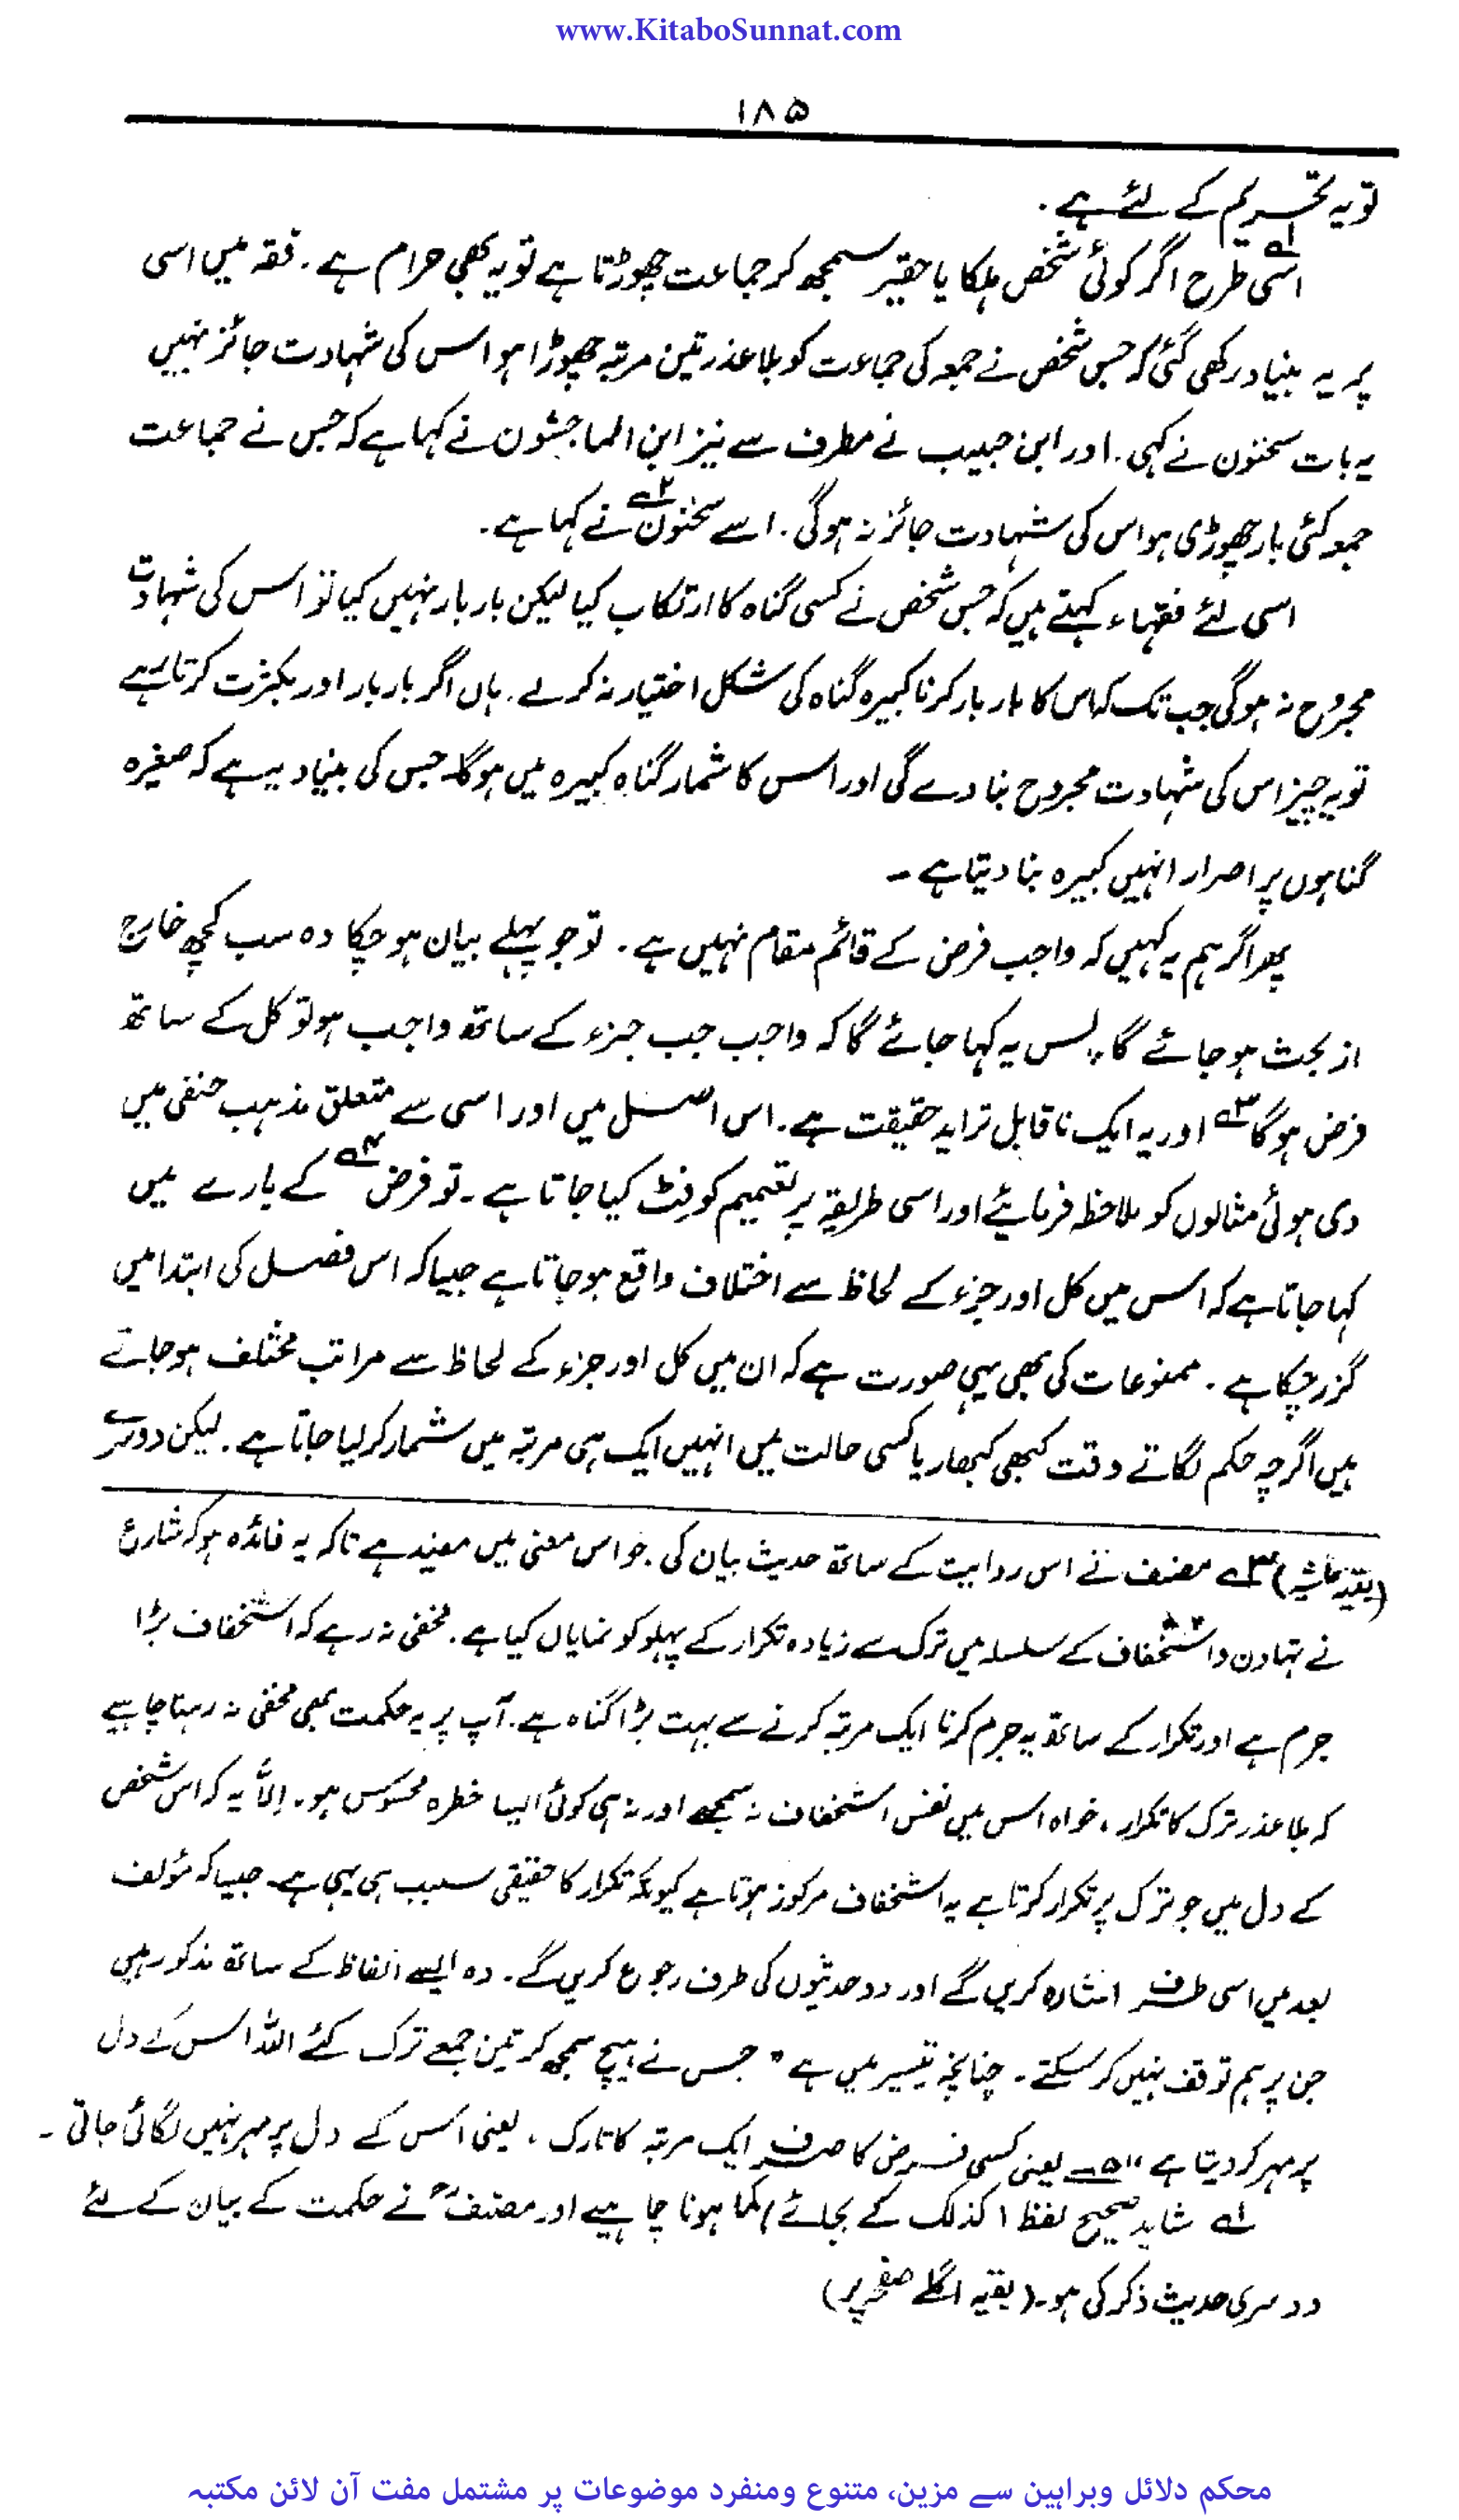 www.KitaboSunnat.com
۱۸۵
تو یہ تحریم کے لئے ہے ۔
اسی۱ے طرح اگر کوئی شخص ہلکا یا حقیر سمجھ کر جماعت چھوڑتا ہے تو یہ بھی حرام ہے ۔ فقہ میں اسی
پر یہ بنیاد رکھی گئی کہ جس شخص نے جمعہ کی جماعت کو بلا عذر تین مرتبہ چھوڑا ہو اس کی شہادت جائز نہیں
یہ بات سحنون نے کہی ۔ اور ابن حبیب نے مطرف سے نیز ابن الماجشون نے کہا ہے کہ جس نے جماعت
جمعہ کئی بار چھوڑی ہو اس کی شہادت جائز نہ ہوگی ۔ اسے سحنون۲ے نے کہا ہے ۔
اسی لئے فقہاء کہتے ہیں کہ جس شخص نے کسی گناہ کا ارتکاب کیا لیکن بار بار نہیں کیا تو اس کی شہادت
مجروح نہ ہوگی جب تک کہ اس کا بار بار کرنا کبیرہ گناہ کی شکل اختیار نہ کرلے ۔ ہاں اگر بار بار اور بکثرت کرتا ہے
تو یہ چیز اس کی شہادت مجروح بنا دے گی اور اس کا شمار گناہ کبیرہ میں ہوگا۔ جس کی بنیاد یہ ہے کہ صغیرہ
گناہوں پر اصرار انہیں کبیرہ بنا دیتا ہے ۔
پھر اگر ہم یہ کہیں کہ واجب فرض کے قائم مقام نہیں ہے ۔ تو جو پہلے بیان ہو چکا وہ سب کچھ خارج
از بحث ہو جائے گا پس یہ کہا جائے گا کہ واجب جب جزء کے ساتھ واجب ہو تو کل کے ساتھ
فرض ہوگا۳ے اور یہ ایک ناقابل تراید حقیقت ہے ۔ اس اصل میں اور اسی سے متعلق مذہب حنفی میں
دی ہوئی مثالوں کو ملاحظہ فرمائیے اور اسی طریقہ پر تعمیم کو فِٹ کیا جاتا ہے ۔ تو فرض۴ے کے بارے میں
کہا جاتا ہے کہ اس میں کل اور جزء کے لحاظ سے اختلاف واقع ہو جاتا ہے جیسا کہ اس فصل کی ابتدا میں
گزر چکا ہے ۔ ممنوعات کی بھی یہی صورت ہے کہ ان میں کل اور جزء کے لحاظ سے مراتب مختلف ہو جاتے
ہیں اگرچہ حکم لگاتے وقت کبھی کبھار یا کسی حالت میں انہیں ایک ہی مرتبہ میں شمار کر لیا جاتا ہے ۔ لیکن دوسرے
(بقیہ حاشیہ) ۴ے مصنف نے اس روایت کے ساتھ حدیث بیان کی ۔ جو اس معنی میں مفید ہے تاکہ یہ فائدہ ہو کہ شارع
نے تہاون و استخفاف کے سلسلہ میں ترک سے زیادہ تکرار کے پہلو کو نمایاں کیا ہے ۔ مخفی نہ رہے کہ استخفاف بڑا
جرم ہے اور تکرار کے ساتھ یہ جرم کرنا ایک مرتبہ کرنے سے بہت بڑا گناہ ہے ۔ آپ پر یہ حکمت بھی مخفی نہ رہنا چاہیے
کہ بلا عذر ترک کا تکرار ، خواہ اس میں نفس استخفاف نہ سمجھے اور نہ ہی کوئی ایسا خطرہ محسوس ہو ۔ اِلاّ یہ کہ اس شخص
کے دل میں جو ترک پر تکرار کرتا ہے یہ استخفاف مرکوز ہوتا ہے کیونکہ تکرار کا حقیقی سبب ہی یہی ہے۔ جیسا کہ مؤلف
بعد میں اسی طرف اشارہ کریں گے اور دو حدیثوں کی طرف رجوع کریں گے ۔ وہ ایسے الفاظ کے ساتھ مذکور ہیں
جن پر ہم توقف نہیں کر سکتے ۔ چنانچہ تیسیر میں ہے " جس نے ہیچ سمجھ کر تین جمعے ترک کئے اللہ اس کے دل
پر مہر کر دیتا ہے " ۵ے یعنی کسی فرض کا صرف ایک مرتبہ کا تارک ، یعنی اس کے دل پر مہر نہیں لگائی جاتی ۔
۱ے شاید صحیح لفظ اکذلک کے بجائے لہٰذا ہونا چاہیے اور مصنف نے حکمت کے بیان کے لئے
دوسری حدیث ذکر کی ہو۔ (بقیہ اگلے صفحہ پر)
محکم دلائل وبراہین سے مزین، متنوع ومنفرد موضوعات پر مشتمل مفت آن لائن مکتبہ